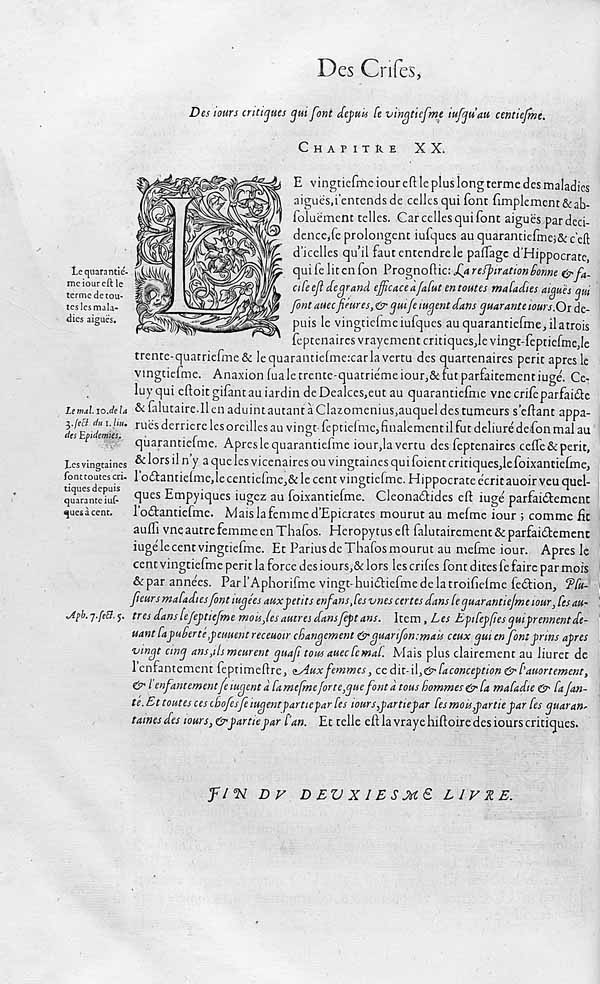 Des Criſes,
Des iours critiques qui ſont depuis le vingtieſme iuſqu'au centieſme.
CHAPITRE XX.
LE vingtieſme iour eſt le plus long terme des maladies
aiguës, i'entends de celles qui ſont ſimplement & ab-
ſoluëment telles. Car celles qui ſont aiguës par deci-
dence, ſe prolongent iuſques au quarantieſme; & c'eſt
d'icelles qu'il faut entendre le paſſage d'Hippocrate,
qui ſe lit en ſon Prognoſtic: La reſpiration bonne & fa-
cile eſt de grand efficace à ſalut en toutes maladies aiguës qui
ſont auec fieures, & qui ſe iugent dans quarante iours. Or de-
puis le vingtieſme iuſques au quarantieſme, il a trois
ſeptenaires vrayement critiques, le vingt-ſeptieſme, le
trente-quatrieſme & le quarantieſme: car la vertu des quartenaires perit apres le
vingtieſme. Anaxion ſua le trente-quatriéme iour, & fut parfaitement iugé. Ce-
luy qui eſtoit giſant au iardin de Dealces, eut au quarantieſme vne criſe parfaicte
& ſalutaire. Il en aduint autant à Clazomenius, auquel des tumeurs s'eſtant appa-
ruës derriere les oreilles au vingt-ſeptieſme, finalement il fut deliuré de ſon mal au
quarantieſme. Apres le quarantieſme iour, la vertu des ſeptenaires ceſſe & perit,
& lors il n'y a que les vicenaires ou vingtaines qui ſoient critiques, le ſoixantieſme,
l'octantieſme, le centieſme, & le cent vingtieſme. Hippocrate écrit auoir veu quel-
ques Empyiques iugez au ſoixantieſme. Cleonactides eſt iugé parfaictement
l'octantieſme. Mais la femme d'Epicrates mourut au meſme iour; comme fit
auſſi vne autre femme en Thaſos. Heropytus eſt ſalutairement & parfaictement
iugé le cent vingtieſme. Et Parius de Thaſos mourut au meſme iour. Apres le
cent vingtieſme perit la force des iours, & lors les criſes ſont dites ſe faire par mois
& par années. Par l'Aphoriſme vingt-huictieſme de la troiſieſme ſection, Plu-
ſieurs maladies ſont iugées aux petits enfans, les vnes certes dans le quarantieſme iour, les au-
tres dans le ſeptieſme mois, les autres dans ſept ans. Item, Les Epilepſies qui prennent de-
uant la puberté, peuuent receuoir changement & guariſon: mais ceux qui en ſont prins apres
vingt cinq ans, ils meurent quaſi tous auec le mal. Mais plus clairement au liuret de
l'enfantement ſeptimeſtre, Aux femmes, ce dit-il, & la conception & l'auortement,
& l'enfantement ſe iugent à la meſme ſorte, que font à tous hommes & la maladie & la ſan-
té. Et toutes ces choſes ſe iugent partie par les iours, partie par les mois, partie par les quaran-
taines des iours, & partie par l'an. Et telle eſt la vraye hiſtoire des iours critiques.
Le quarantié-
me iour eſt le
terme de tou-
tes les mala-
dies aiguës.
Le mal. 10. de la
3. ſect. du 1. liu.
des Epidemies.
Les vingtaines
ſont toutes cri-
tiques depuis
quarante iuſ-
ques à cent.
Aph. 7. ſect. 5.
FIN DV DEVXIESME LIVRE.